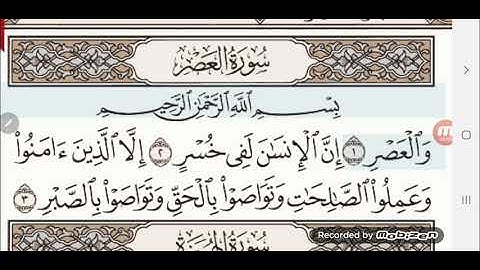 سُورَةُ ٱلْعَصْرِ
بِسْمِ ٱللَّهِ ٱلرَّحْمَٰنِ ٱلرَّحِيمِ
وَٱلْعَصْرِ ١ إِنَّ ٱلْإِنسَٰنَ لَفِى خُسْرٍ ٢ إِلَّا ٱلَّذِينَ ءَامَنُوا۟
وَعَمِلُوا۟ ٱلصَّٰلِحَٰتِ وَتَوَاصَوْا۟ بِٱلْحَقِّ وَتَوَاصَوْا۟ بِٱلصَّبْرِ ٣
سُورَةُ ٱلْهُمَزَةِ
Recorded by Mobizen